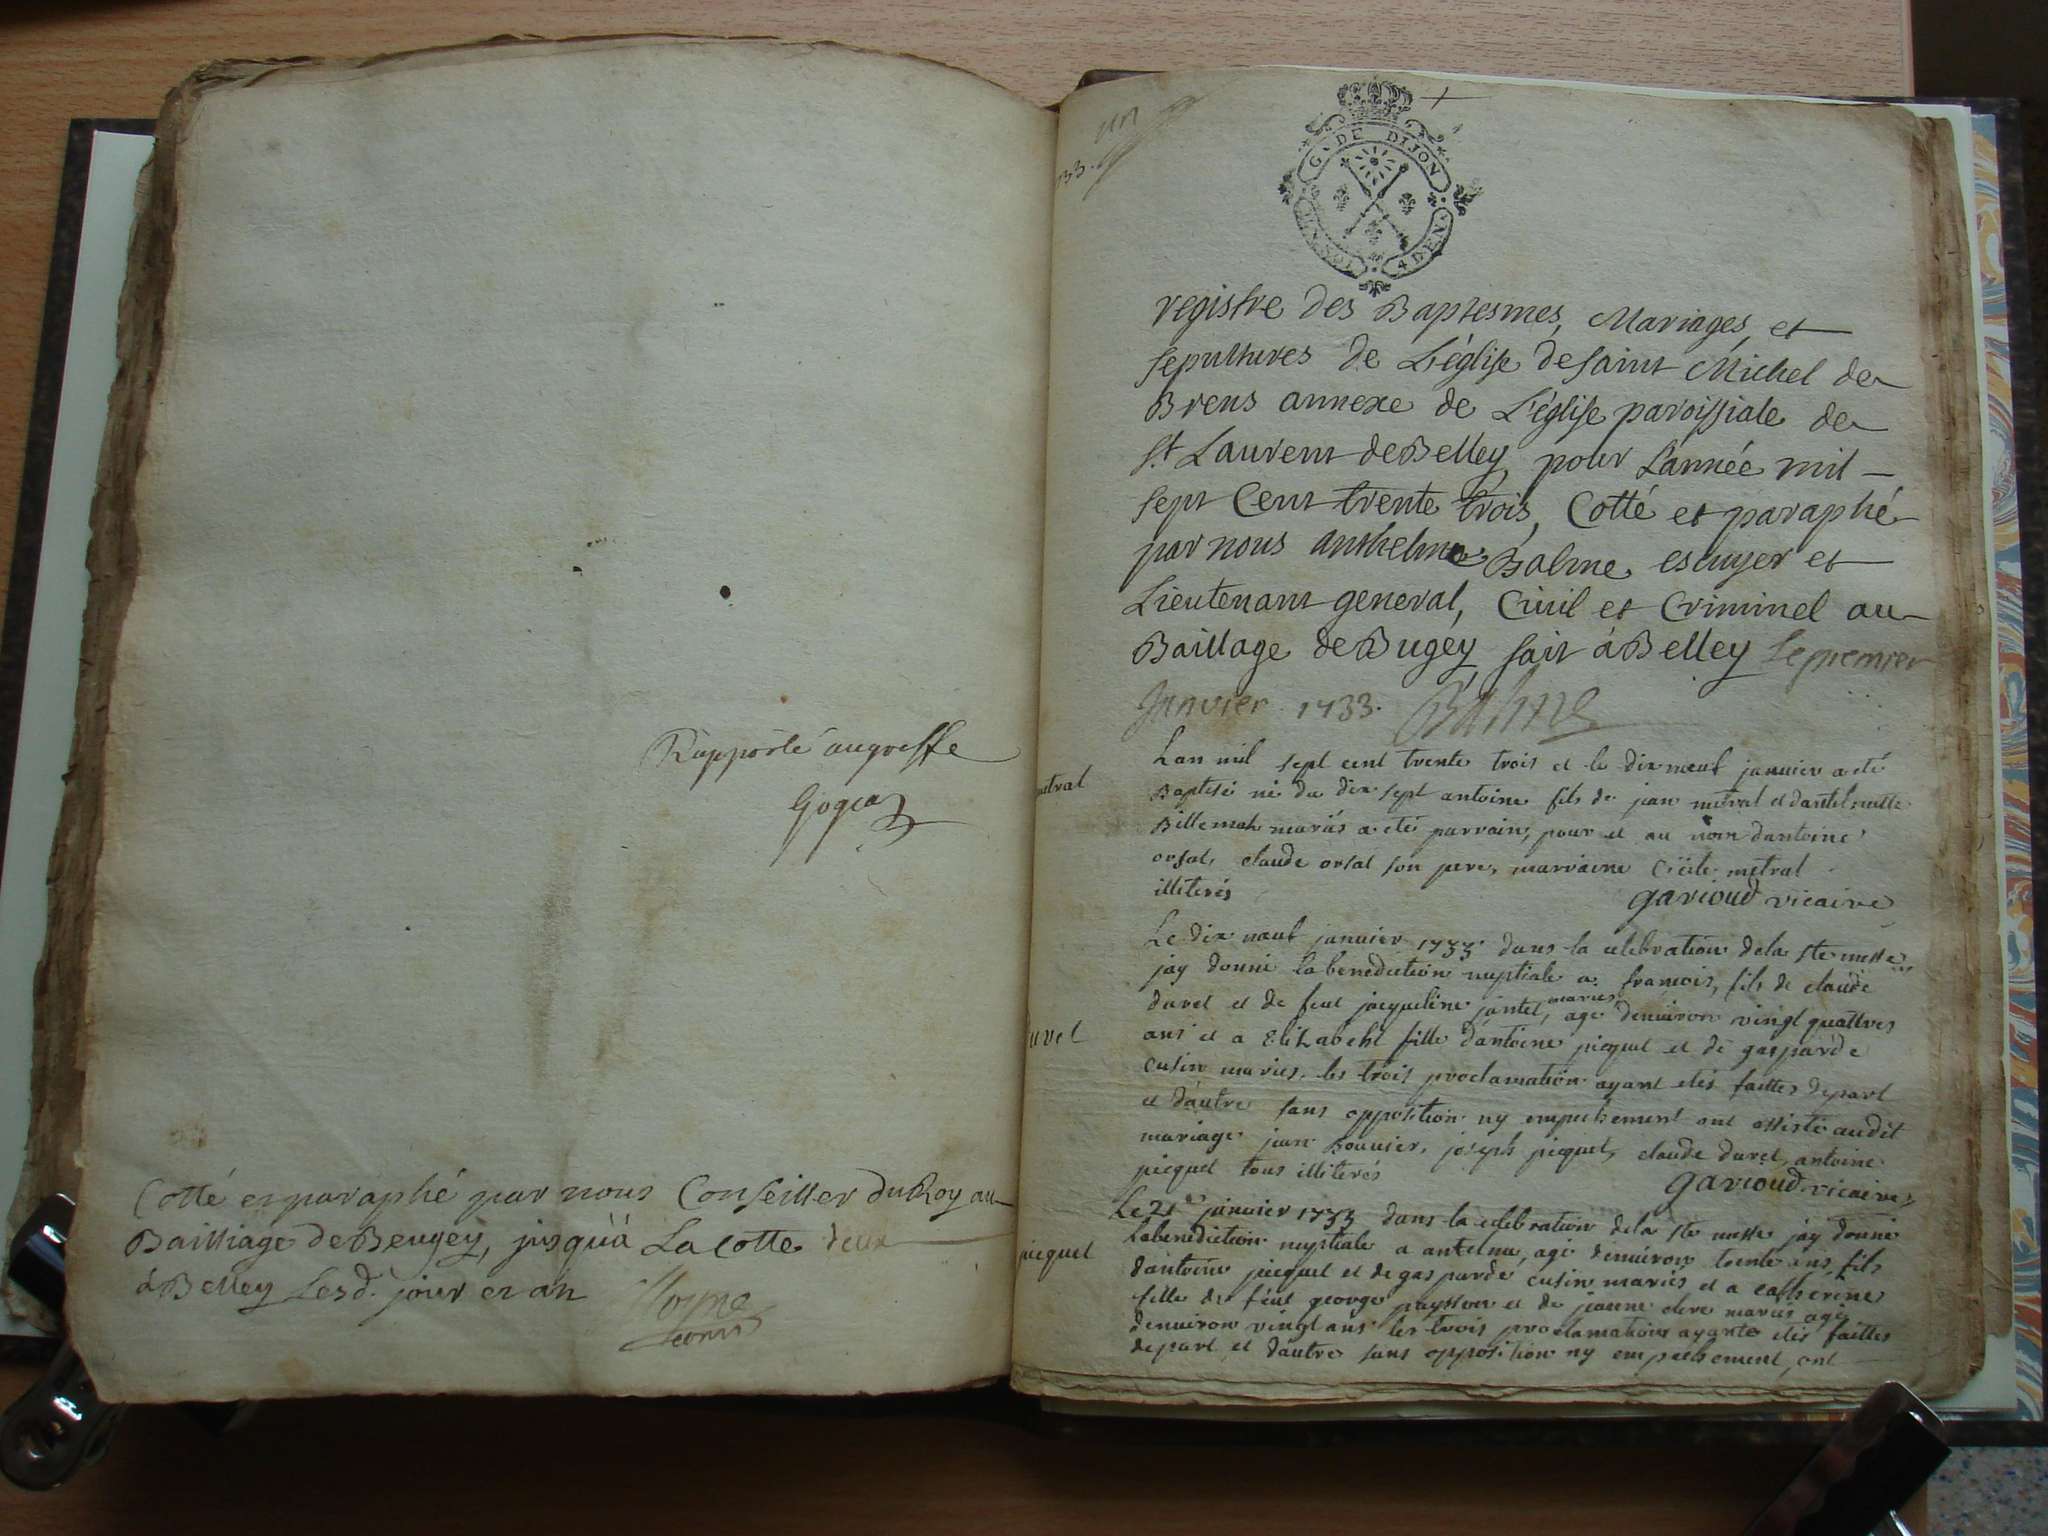 Rapporté au greffe
Cotté et paraphé par nous Conseiller du Roy au
Bailliage de Beugey, jusqu'à La cotte deux
à Belley Lesd. jour et an
un
G. DE DIJON
4 DEN.
registre des Baptesmes, Mariages, et
sepultures de L'église de saint Michel de
Brens annexe de L'église paroissiale de
St. Laurent de Belley, pour L'année mil
sept Cent trente trois, Cotté et paraphé
par nous Anthelme Balme escuyer et
Lieutenant general, Civil et Criminel au
Baillage de Bugey, fait à Belley Le premier
Janvier 1733. Balme
metral
Lan mil sept cent trente trois et le dix neuf janvier a eté
Baptisé né du dix sept antoine fils de jean metral et dantelmette
Billemah mariés a eté parrain, pour et au nom dantoine
orsat, claude orsat son pere, marraine Cicile metral
illiterés garioud vicaire
Le dix neuf janvier 1733 dans la celebration de la ste messe
jay donné la benediction nuptiale a francois, fils de claude
duret et de feue jacqueline jantet, mariés, agé denuiron vingt quattres
ans et a Elizabeht fille dantoine picquet et de gasparde
cusin mariés. les trois proclamation ayant etés faittes depart
et dautre sans opposition ny empechement ont assisté audit
mariage jean Bouuier, joseph picquet, claude duret, antoine
picquet tous illiterés garioud vicaire
Le 21 janvier 1733 dans la celebration de la ste messe jay donné
picquet
la benediction nuptiale a antelme, agé denuiron trente ans, fils
dantoine picquet et de gasparde cusin mariés et a catherine
fille de feue george et de jeanne mariés agé
denuiron vingt ans les trois proclamations ayante etés faittes
depart et dautre sans opposition ny empechement, ont